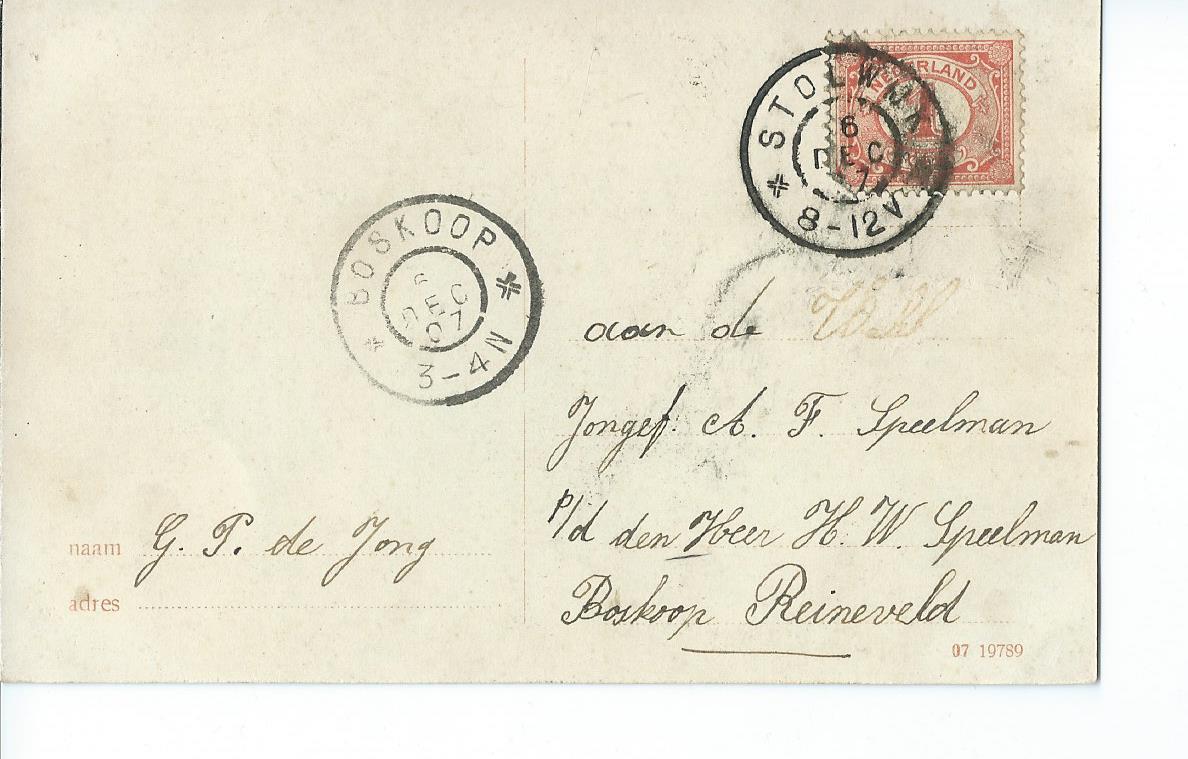 NEDERLAND
1
STOLWIJK
6
DEC
07
8-12V
BOSKOOP
6
DEC
07
3-4N
aan de
Jongef. A. F. Speelman
p/d den Heer H. W. Speelman
Boskoop Reineveld
naam G. P. de Jong
adres
07 19789